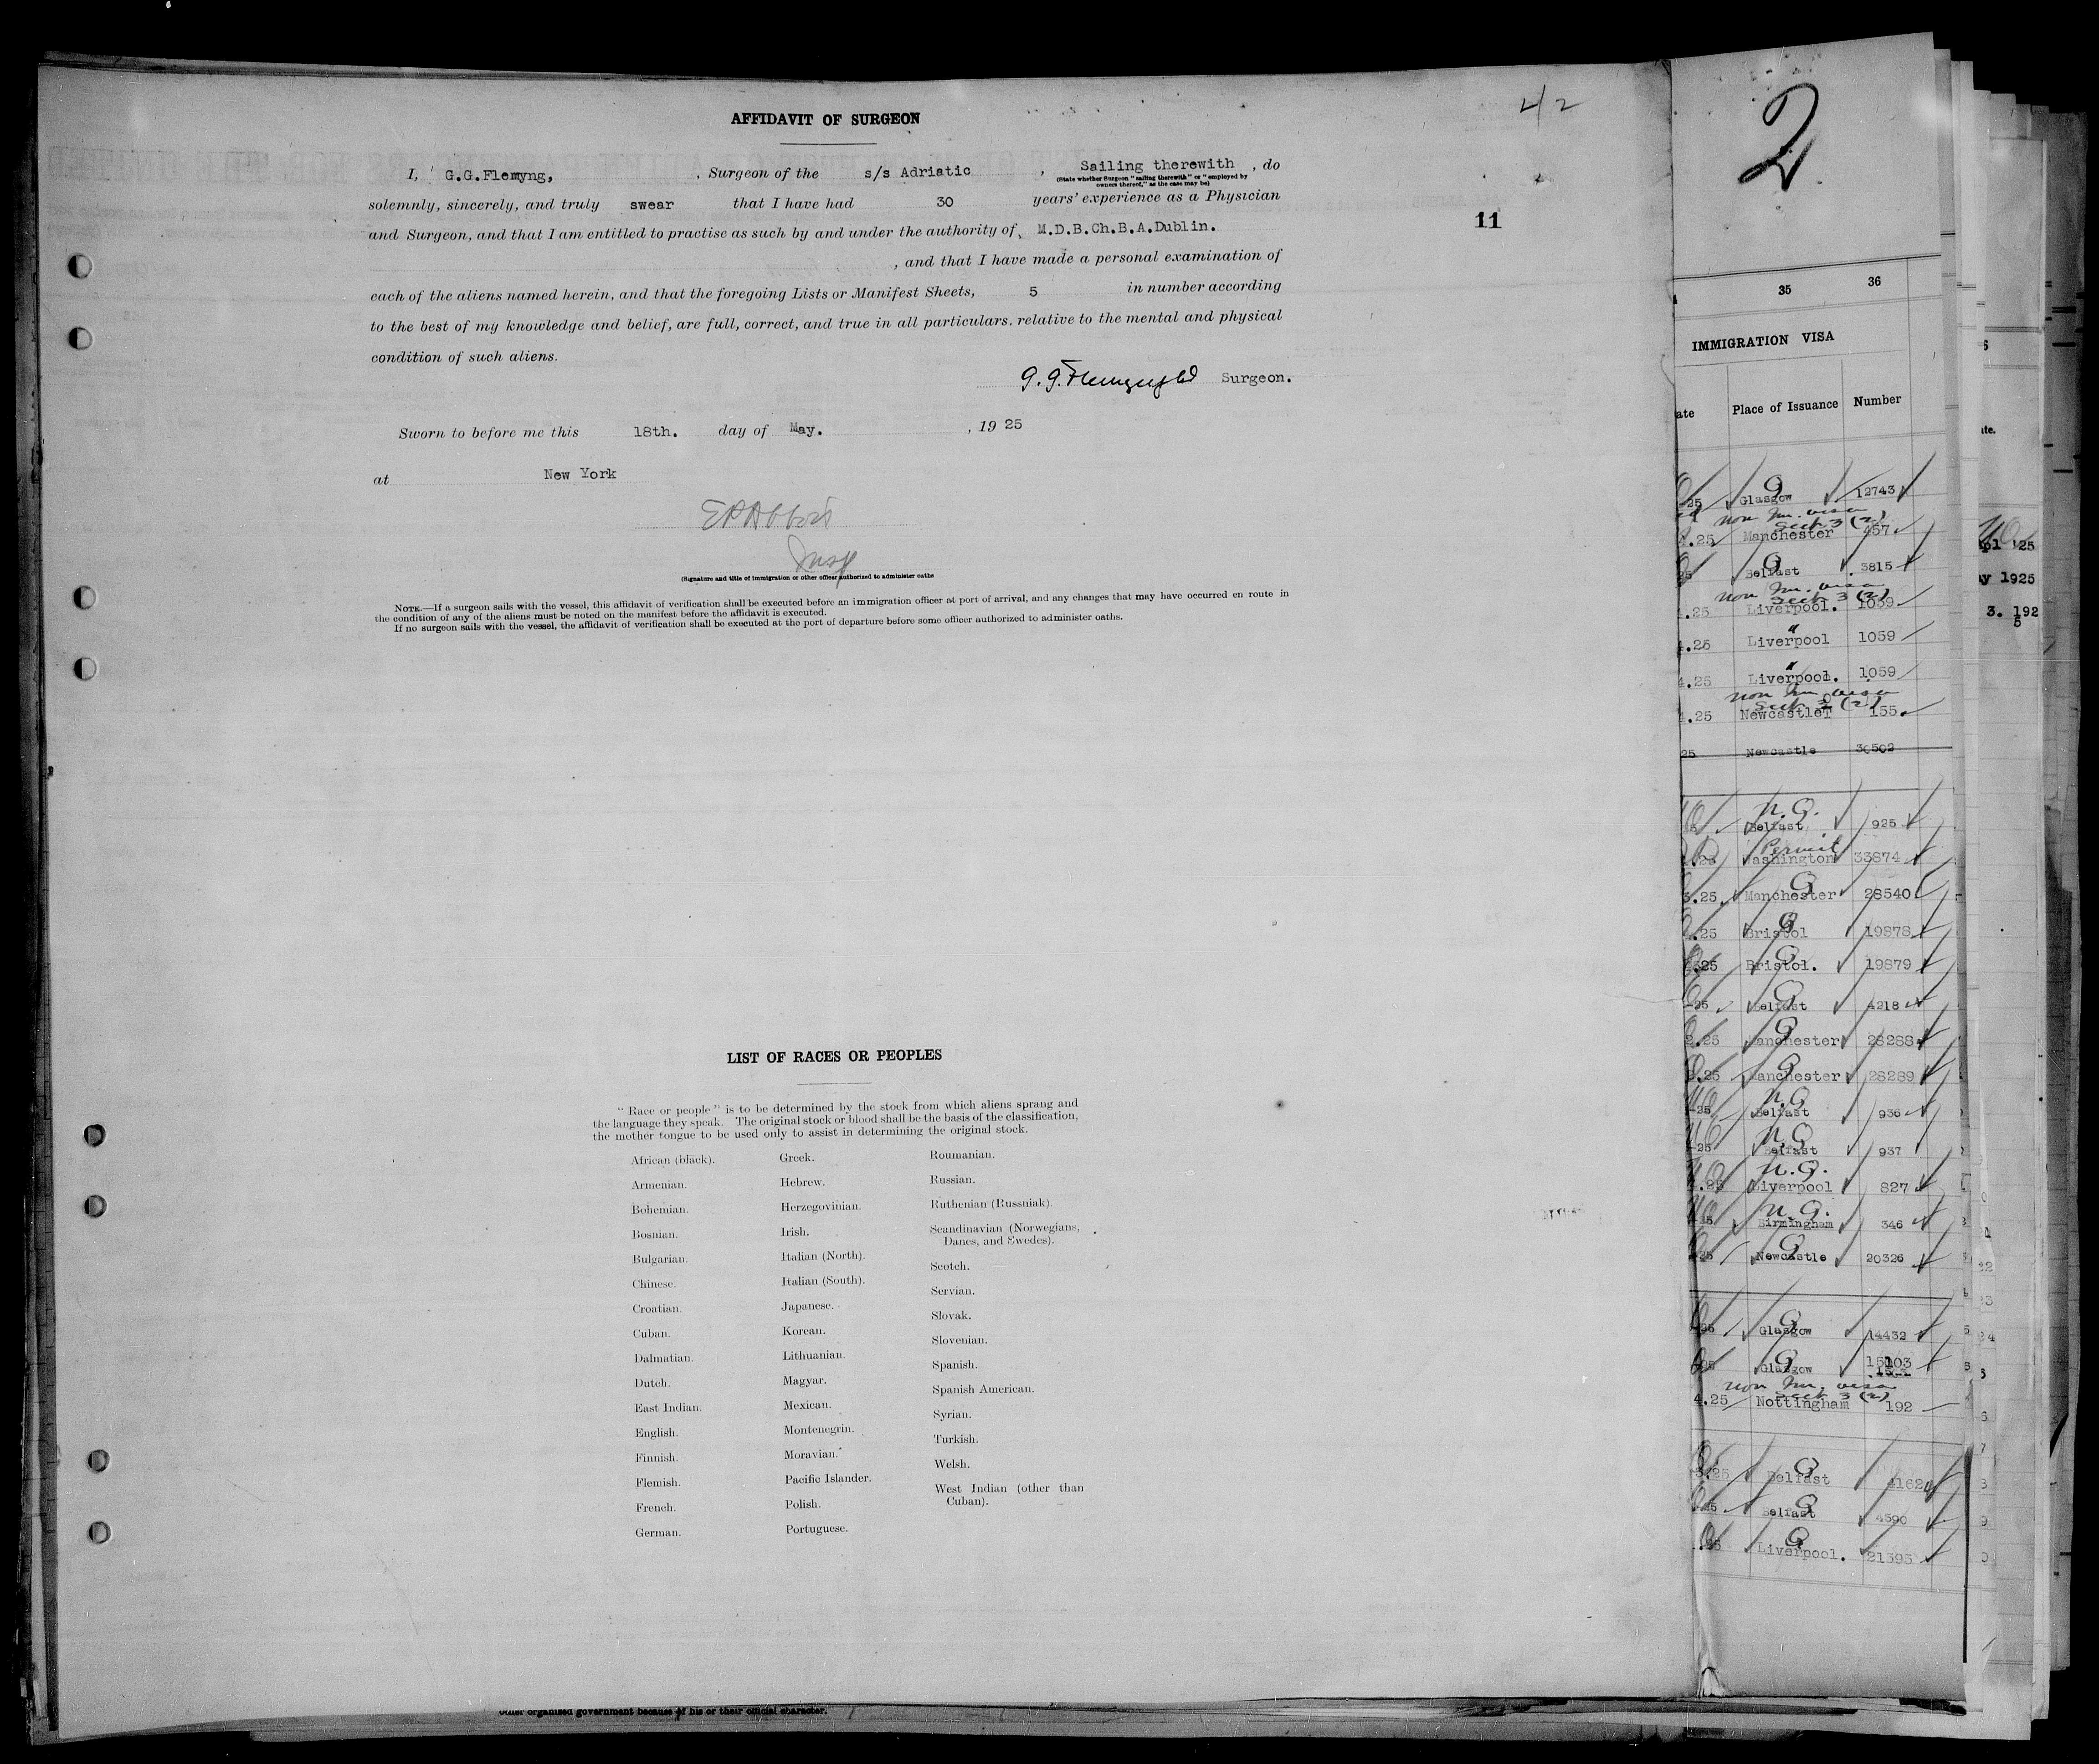 42
AFFIDAVIT OF SURGEON
I, G.G.Flemyng, , Surgeon of the s/s Adriatic , Sailing therewith , do
(State whether Surgeon "sailing therewith" or "employed by
owners thereof," as the case may be)
solemnly, sincerely, and truly swear that I have had 30 years' experience as a Physician
and Surgeon, and that I am entitled to practise as such by and under the authority of M.D.B.Ch.B.A.Dublin.
, and that I have made a personal examination of
each of the aliens named herein, and that the foregoing Lists or Manifest Sheets, 5 in number according
to the best of my knowledge and belief, are full, correct, and true in all particulars. relative to the mental and physical
condition of such aliens.
Surgeon.
Sworn to before me this 18th. day of May. , 19 25
at New York
E P Abbott
Insp
(Signature and title of immigration or other officer authorized to administer oaths
NOTE.—If a surgeon sails with the vessel, this affidavit of verification shall be executed before an immigration officer at port of arrival, and any changes that may have occurred en route in
the condition of any of the aliens must be noted on the manifest before the affidavit is executed.
If no surgeon sails with the vessel, the affidavit of verification shall be executed at the port of departure before some officer authorized to administer oaths.
11
LIST OF RACES OR PEOPLES
"Race or people" is to be determined by the stock from which aliens sprang and
the language they speak. The original stock or blood shall be the basis of the classification,
the mother tongue to be used only to assist in determining the original stock.
African (black).
Armenian.
Bohemian.
Bosnian.
Bulgarian.
Chinese.
Croatian.
Cuban.
Dalmatian.
Dutch.
East Indian.
English.
Finnish.
Flemish.
French.
German.
Greek.
Hebrew.
Herzegovinian.
Irish.
Italian (North).
Italian (South).
Japanese.
Korean.
Lithuanian.
Magyar.
Mexican.
Montenegrin.
Moravian.
Pacific Islander.
Polish.
Portuguese.
Roumanian.
Russian.
Ruthenian (Russniak).
Scandinavian (Norwegians,
Danes, and Swedes).
Scotch.
Servian.
Slovak.
Slovenian.
Spanish.
Spanish American.
Syrian.
Turkish.
Welsh.
West Indian (other than
Cuban).
other organized government because of his or their official character.
2
35 36
IMMIGRATION VISA
ate Place of Issuance Number
25 Glasgow 12743
non Im. visa
Sect 3 (2)
4.25 Manchester 457
25 Belfast 3815
non Im. visa
Sect 3 (2)
4.25 Liverpool. 1059
"
4.25 Liverpool 1059
"
4.25 Liverpool. 1059
non Im visa
Sect 3 (2)
4.25 Newcastle 155.
25 Newcastle 30502
N.Q.
Belfast 925
Permit
Washington 33874
3.25. Manchester 28540
.25 Bristol 19878
25 Bristol. 19879
25 Belfast 4218
.25 Manchester 28288
.25 Manchester 28289
N.Q
25 Belfast 936
N.Q
25 Belfast 937
N.Q.
25 Liverpool 827
N.Q.
25 Birmingham 346
25 Newcastle 20326
25 Glasgow 14432
25 Glasgow 15103
non Im. visa
Sect 3 (2)
4.25 Nottingham 192
.25 Belfast 4162
25 Belfast 4390
Liverpool. 21395
ate.
pl '25
ay 1925
3. 192
5